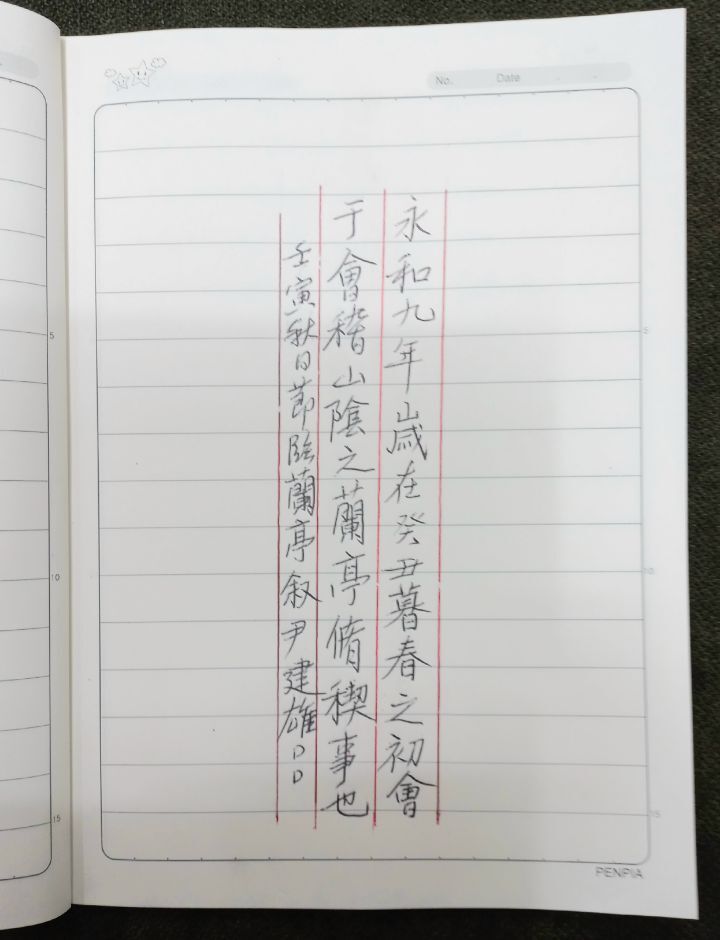 No. Date
永和九年歲在癸丑暮春之初會
于會稽山陰之蘭亭脩稧事也
壬寅秋日節臨蘭亭叙尹建雄
5
10
15
5
10
15
PENPIA